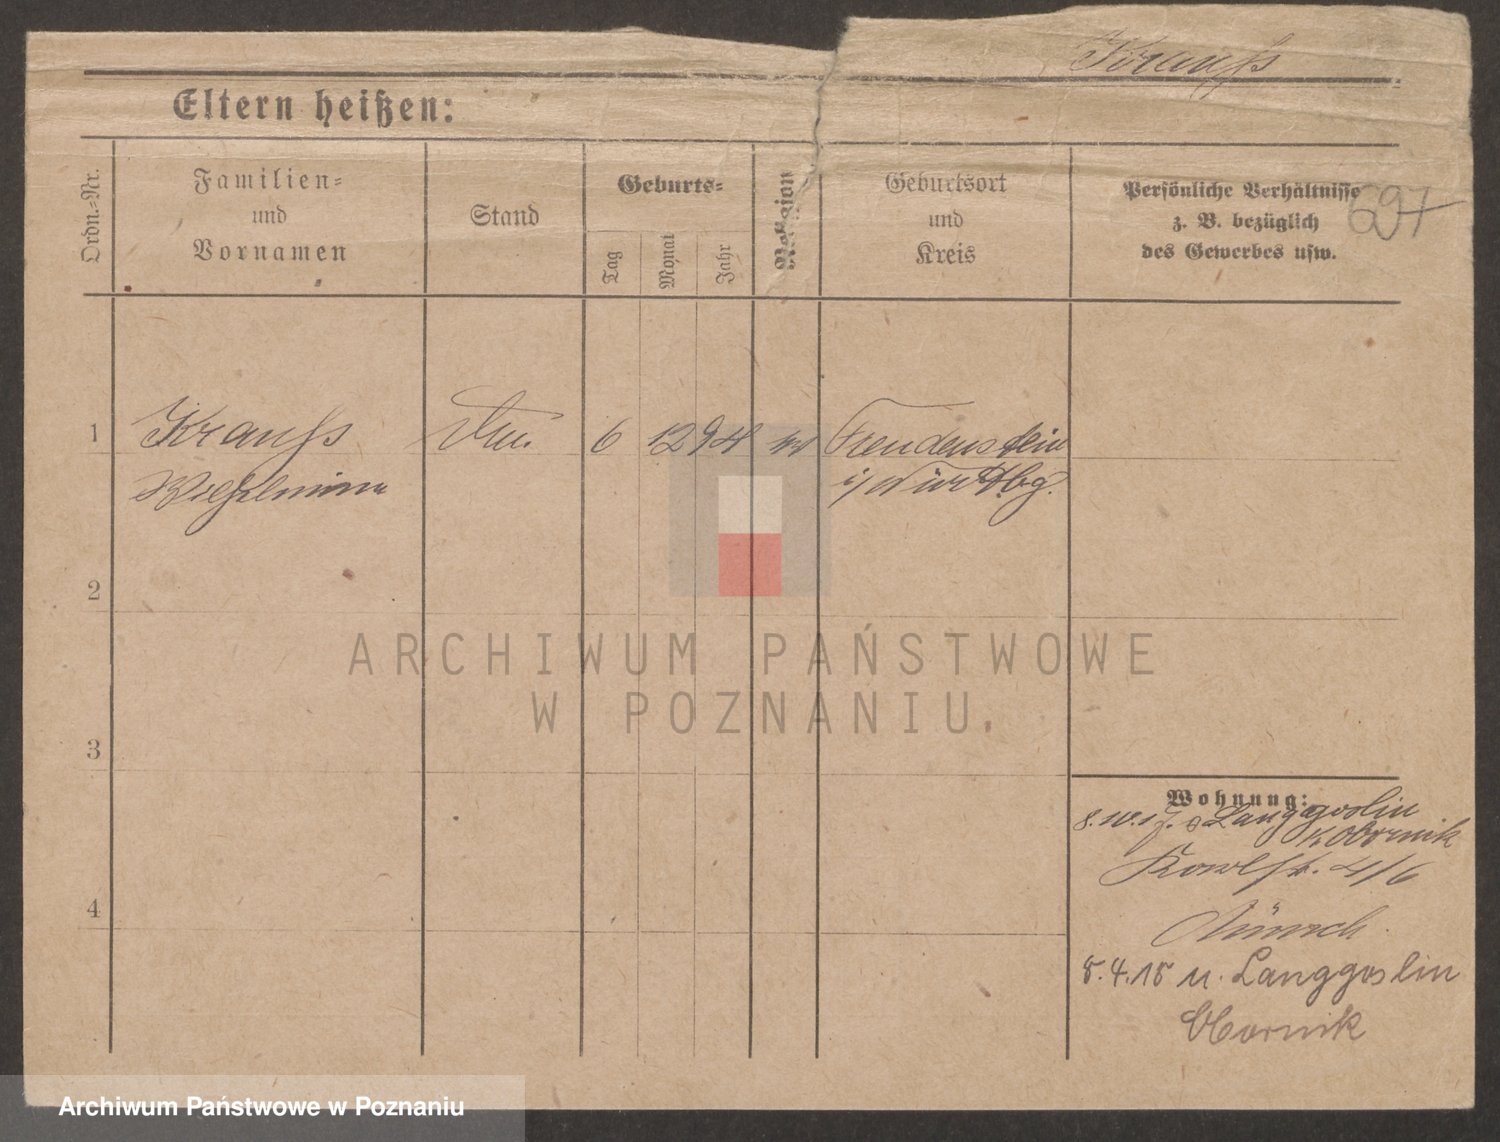 Krauß
Eltern heißen:
Ordn.=Nr.
Familien=
und
Vornamen
Stand
Geburts=
Tag
Monat
Jahr
Religion
Geburtsort
und
Kreis
Persönliche Verhältnisse
z. B. bezüglich
des Gewerbes usw.
697
1
Krauß
Wilhelmine
6
12
94
Freudenstein
i/ Württbg.
2
ARCHIWUM PAŃSTWOWE
W POZNANIU
3
Wohnung:
Langgoslin
Obornik
4/6
4
8.4.18 n. Langgoslin
Obornik
Archiwum Państwowe w Poznaniu